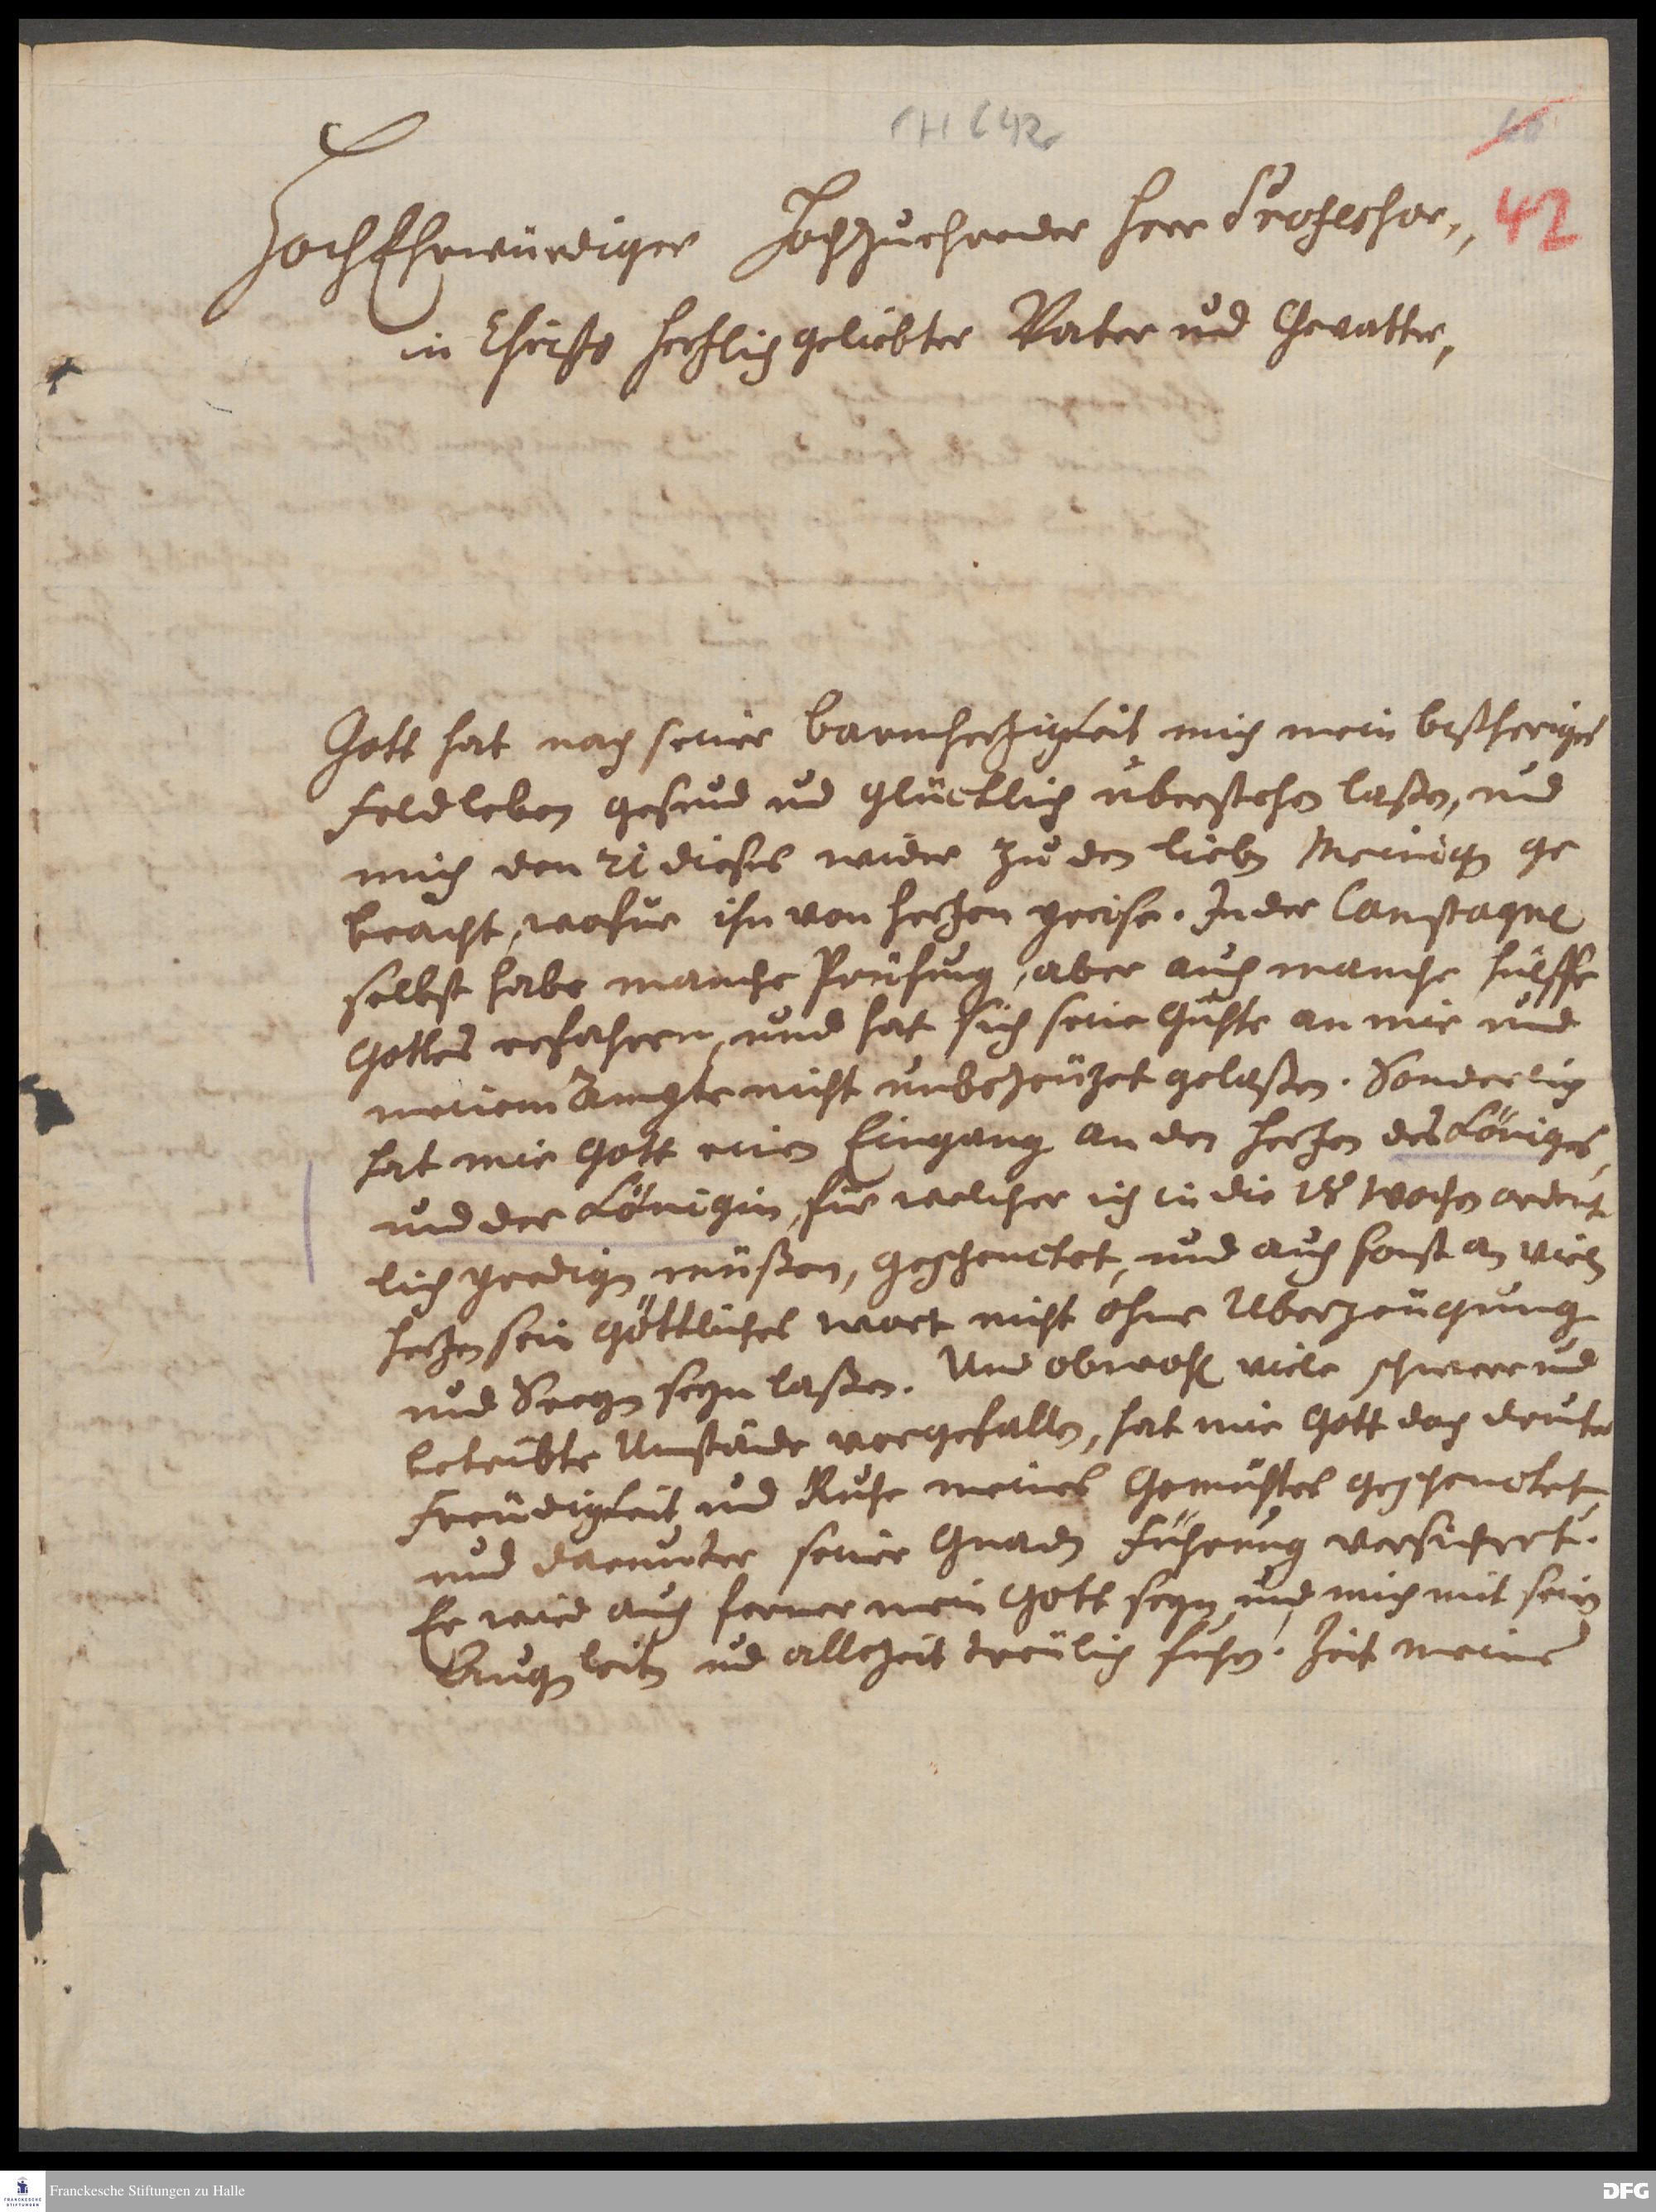 CH 642
42
HochEhrwürdiger Hochzuehrender Herr Professor,,
in Christo hertzlich geliebter Vater und Gevatter,
Gott hat nach seiner barmhertzigkeit mich mein bißheriges
Feldleben gesund und glücklich überstehen laßen, und
mich den 21 dieses wider zu den lieben Meinigen ge
bracht, wofür ihn von hertzen preise. In der Campagne
selbst habe manche Prüfung, aber auch manche hülffe
Gottes erfahren, und hat sich seine Güthe an mir und
meinem Ampte nicht unbezeüget gelaßen. Sonderlich
hat mir Gott einen Eingang an den hertzen des Königes,
und der Königin, für welcher ich in die 18 Wochen ordent
lich predigen müßen, geschencket, und auch sonst an vielen
hertzen sein göttliches wort nicht ohne Uberzeugung
und Seegen seyn laßen. Und obwohl viele schwere und
betrübte Umstände vorgefallen, hat mir Gott doch
Freüdigkeit und Ruhe meines Gemüthes geschencket,
und darunter seiner Gnaden Führung versichert.
Er wird auch ferner mein Gott seyn, und mich mit seinen
Augen leiten und allezeit treülich führen. Zeit meiner
Franckesche Stiftungen zu Halle
FRANCKESCHE STIFTUNGEN
DFG